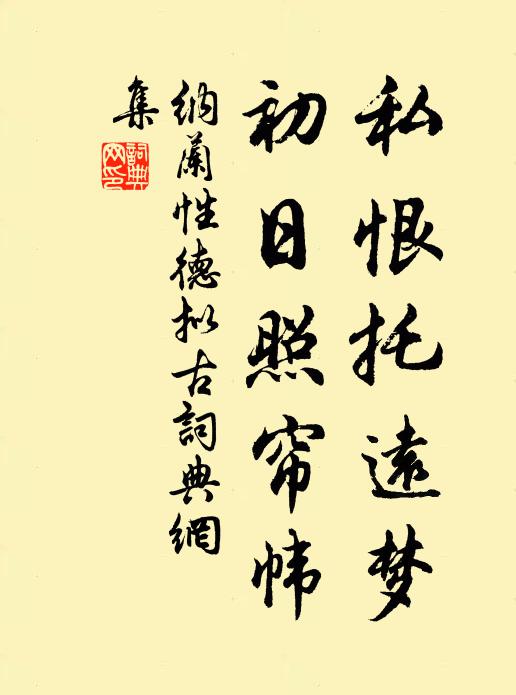 私恨托遠梦
初日照帘帏
納蘭性德拟古詞典網
集
詞典網印